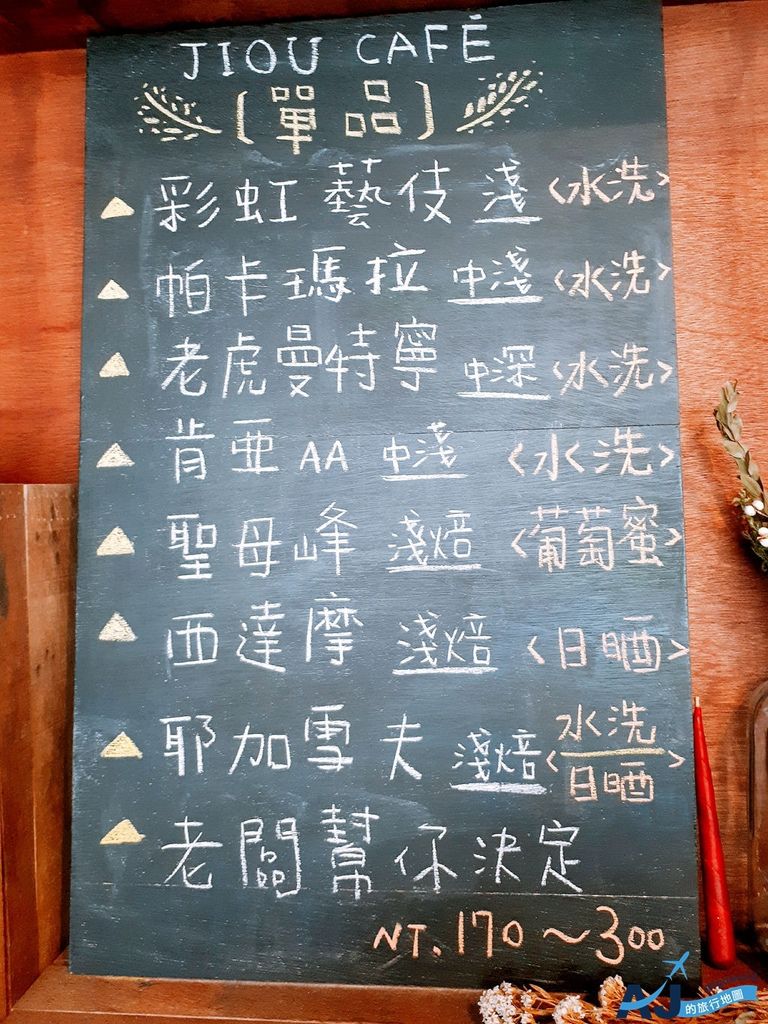 JIOU CAFÉ
〔單品〕
彩虹藝伎 淺 <水洗>
帕卡瑪拉 中淺 <水洗>
老虎曼特寧 中深 <水洗>
肯亞 AA 中淺 <水洗>
聖母峰 淺焙 <葡萄蜜>
西達摩 淺焙 <日晒>
耶加雪夫 淺焙 <水洗
日晒>
老闆幫你決定
NT. 170～300
AJ
的旅行地圖